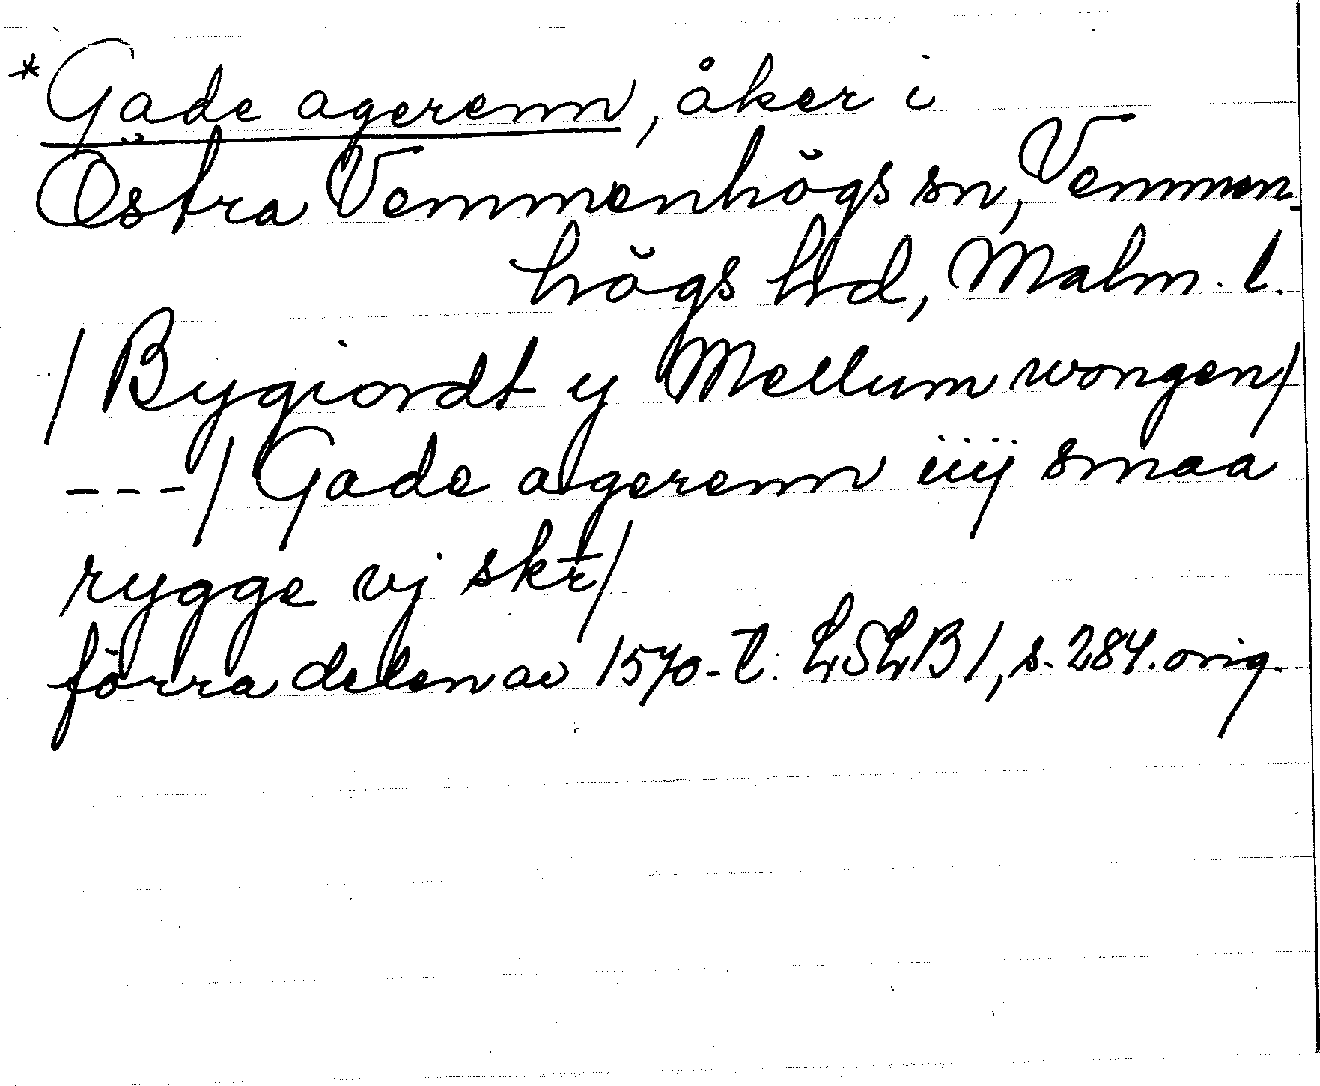 *Gade agerenn, åker i
Östra Vemmenhögs sn, Vemmen-
högs hd, Malm. l.
/ Bygiordt y Mellum wongen /
--- / Gade agerenn iiij smaa
rygge vj skr̄ /
förra delen av 1570-t. LSLB 1, s. 284. orig.